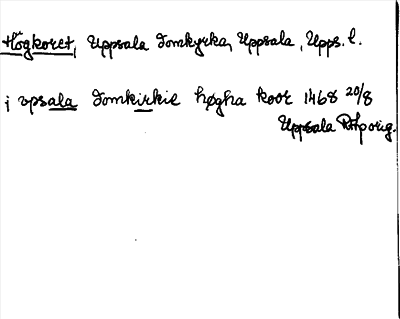 Högkoret, Uppsala Domkyrka, Uppsala, Upps. l.
i vpsala Domkirkie høgha koor 1468 20/8
Uppsala RAp orig.